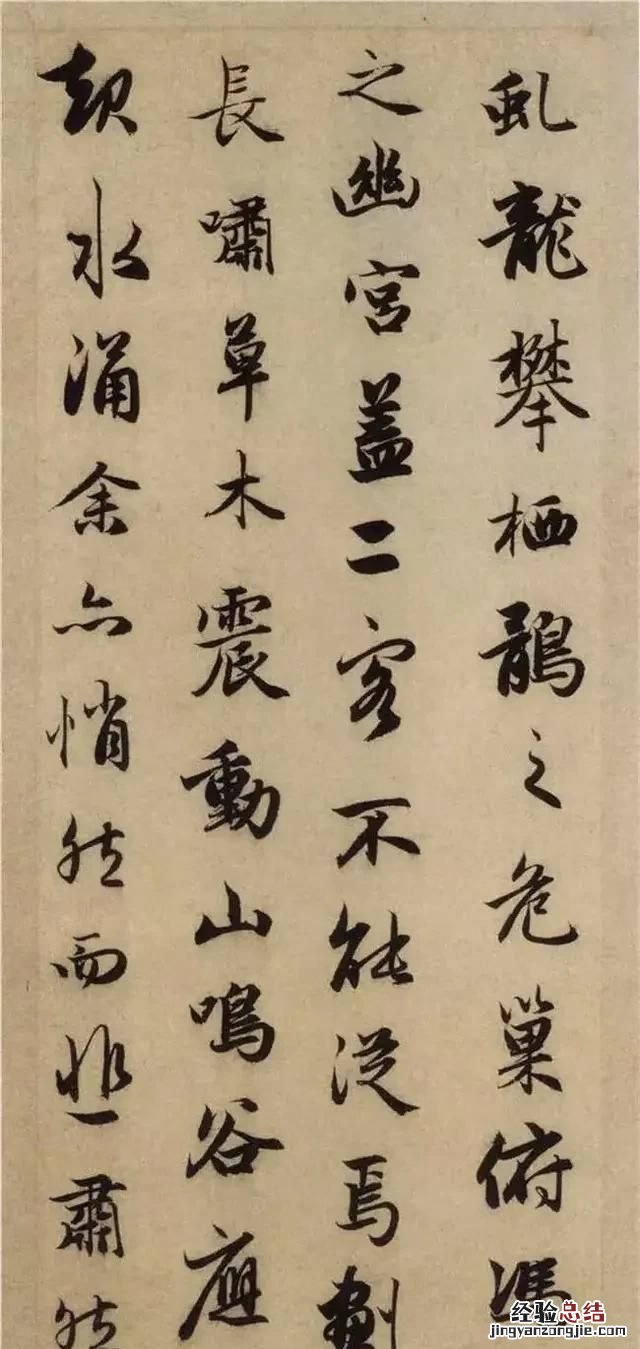 虬龍攀栖鶻之危巢俯馮
之幽宮蓋二客不能從焉劃
長嘯草木震動山鳴谷應
起水涌余亦悄然而悲肅然
经验总结
jingyanzongjie.com